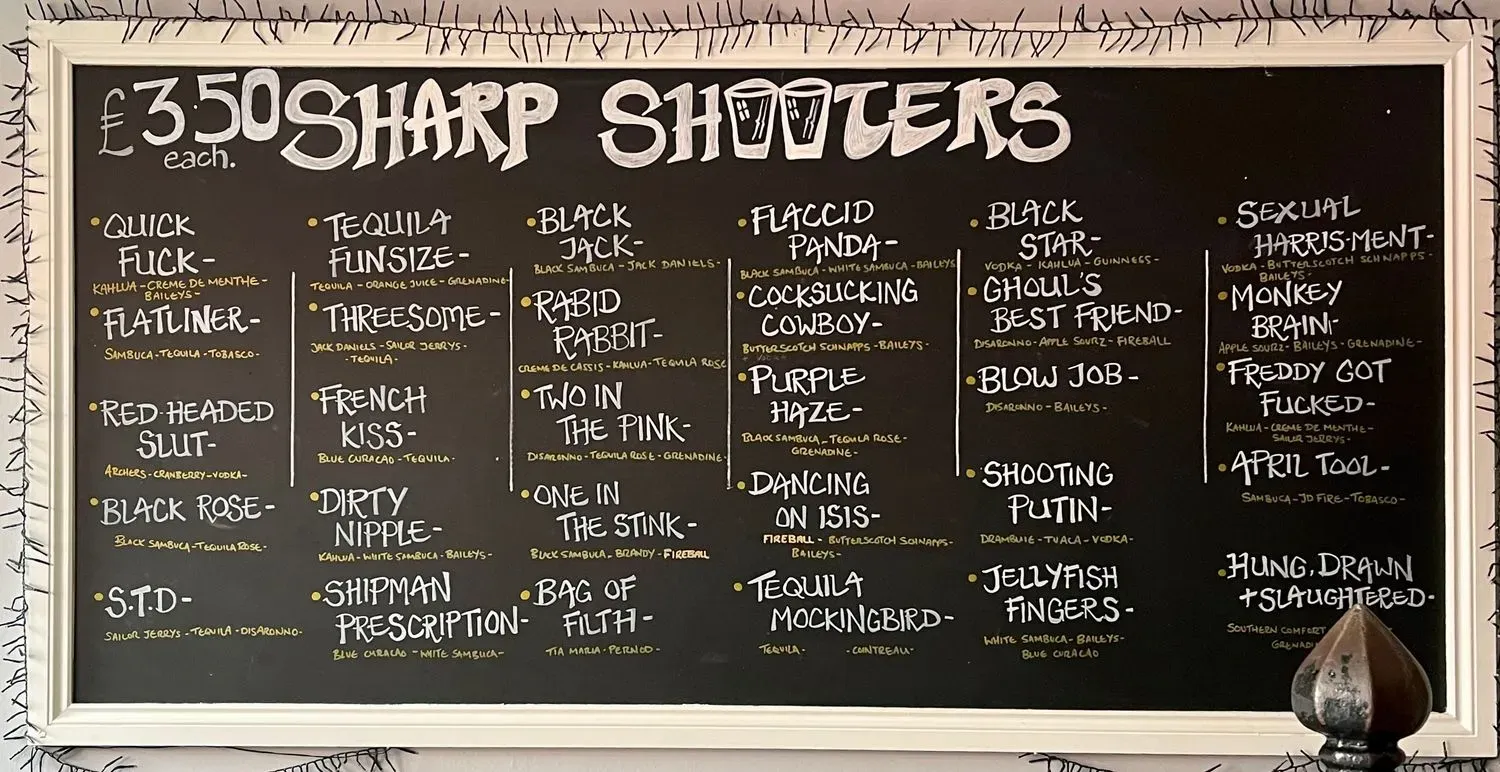 £3.50 SHARP SHOOTERS
each.
• QUICK
FUCK-
KAHLUA-CREME DE MENTHE-
BAILEYS-
• FLATLINER-
SAMBUCA-TEQUILA-TOBASCO-
• RED-HEADED
SLUT-
ARCHERS-CRANBERRY-VODKA-
• BLACK ROSE-
BLACK SAMBUCA-TEQUILA ROSE-
• S.T.D-
SAILOR JERRYS-TEQUILA-DISARONNO-
• TEQUILA
FUNSIZE-
TEQUILA-ORANGE JUICE-GRENADINE-
• THREESOME-
JACK DANIELS-SAILOR JERRYS-
-TEQUILA-
• FRENCH
KISS-
BLUE CURACAO-TEQUILA-
• DIRTY
NIPPLE-
KAHLUA-WHITE SAMBUCA-BAILEYS-
• SHIPMAN
PRESCRIPTION-
BLUE CURACAO-WHITE SAMBUCA-
• BLACK
JACK-
BLACK SAMBUCA-JACK DANIELS-
• RABID
RABBIT-
CREME DE CASSIS-KAHLUA-TEQUILA ROSE
• TWO IN
THE PINK-
DISARONNO-TEQUILA ROSE-GRENADINE-
• ONE IN
THE STINK-
BLACK SAMBUCA-BRANDY-FIREBALL
• BAG OF
FILTH-
TIA MARIA-PERNOD-
• FLACCID
PANDA-
BLACK SAMBUCA-WHITE SAMBUCA-BAILEYS
• COCKSUCKING
COWBOY-
BUTTERSCOTCH SCHNAPPS-BAILEYS-
• PURPLE
HAZE-
BLACK SAMBUCA-TEQUILA ROSE-
GRENADINE-
• DANCING
ON ISIS-
FIREBALL-BUTTERSCOTCH SCHNAPPS-
BAILEYS-
• TEQUILA
MOCKINGBIRD-
TEQUILA- -COINTREAU-
• BLACK
STAR-
VODKA-KAHLUA-GUINNESS-
• GHOUL'S
BEST FRIEND-
DISARONNO-APPLE SOURZ-FIREBALL
• BLOW JOB-
DISARONNO-BAILEYS-
• SHOOTING
PUTIN-
DRAMBUIE-TUACA-VODKA-
• JELLYFISH
FINGERS-
WHITE SAMBUCA-BAILEYS-
BLUE CURACAO
• SEXUAL
HARRIS-MENT-
VODKA-BUTTERSCOTCH SCHNAPPS-
BAILEYS-
• MONKEY
BRAIN-
APPLE SOURZ-BAILEYS-GRENADINE-
• FREDDY GOT
FUCKED-
KAHLUA-CREME DE MENTHE-
SAILOR JERRYS-
• APRIL TOOL-
SAMBUCA-JD FIRE-TOBASCO-
• HUNG, DRAWN
+ SLAUGHTERED-
SOUTHERN COMFORT